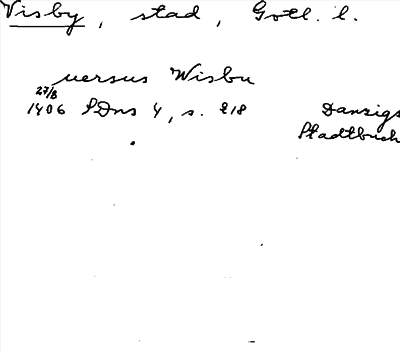 Visby, stad, Gotl. l.
versus Wisbu
27/8
1406 SDns 4, s. 218 Danzigs
Stadtbuch